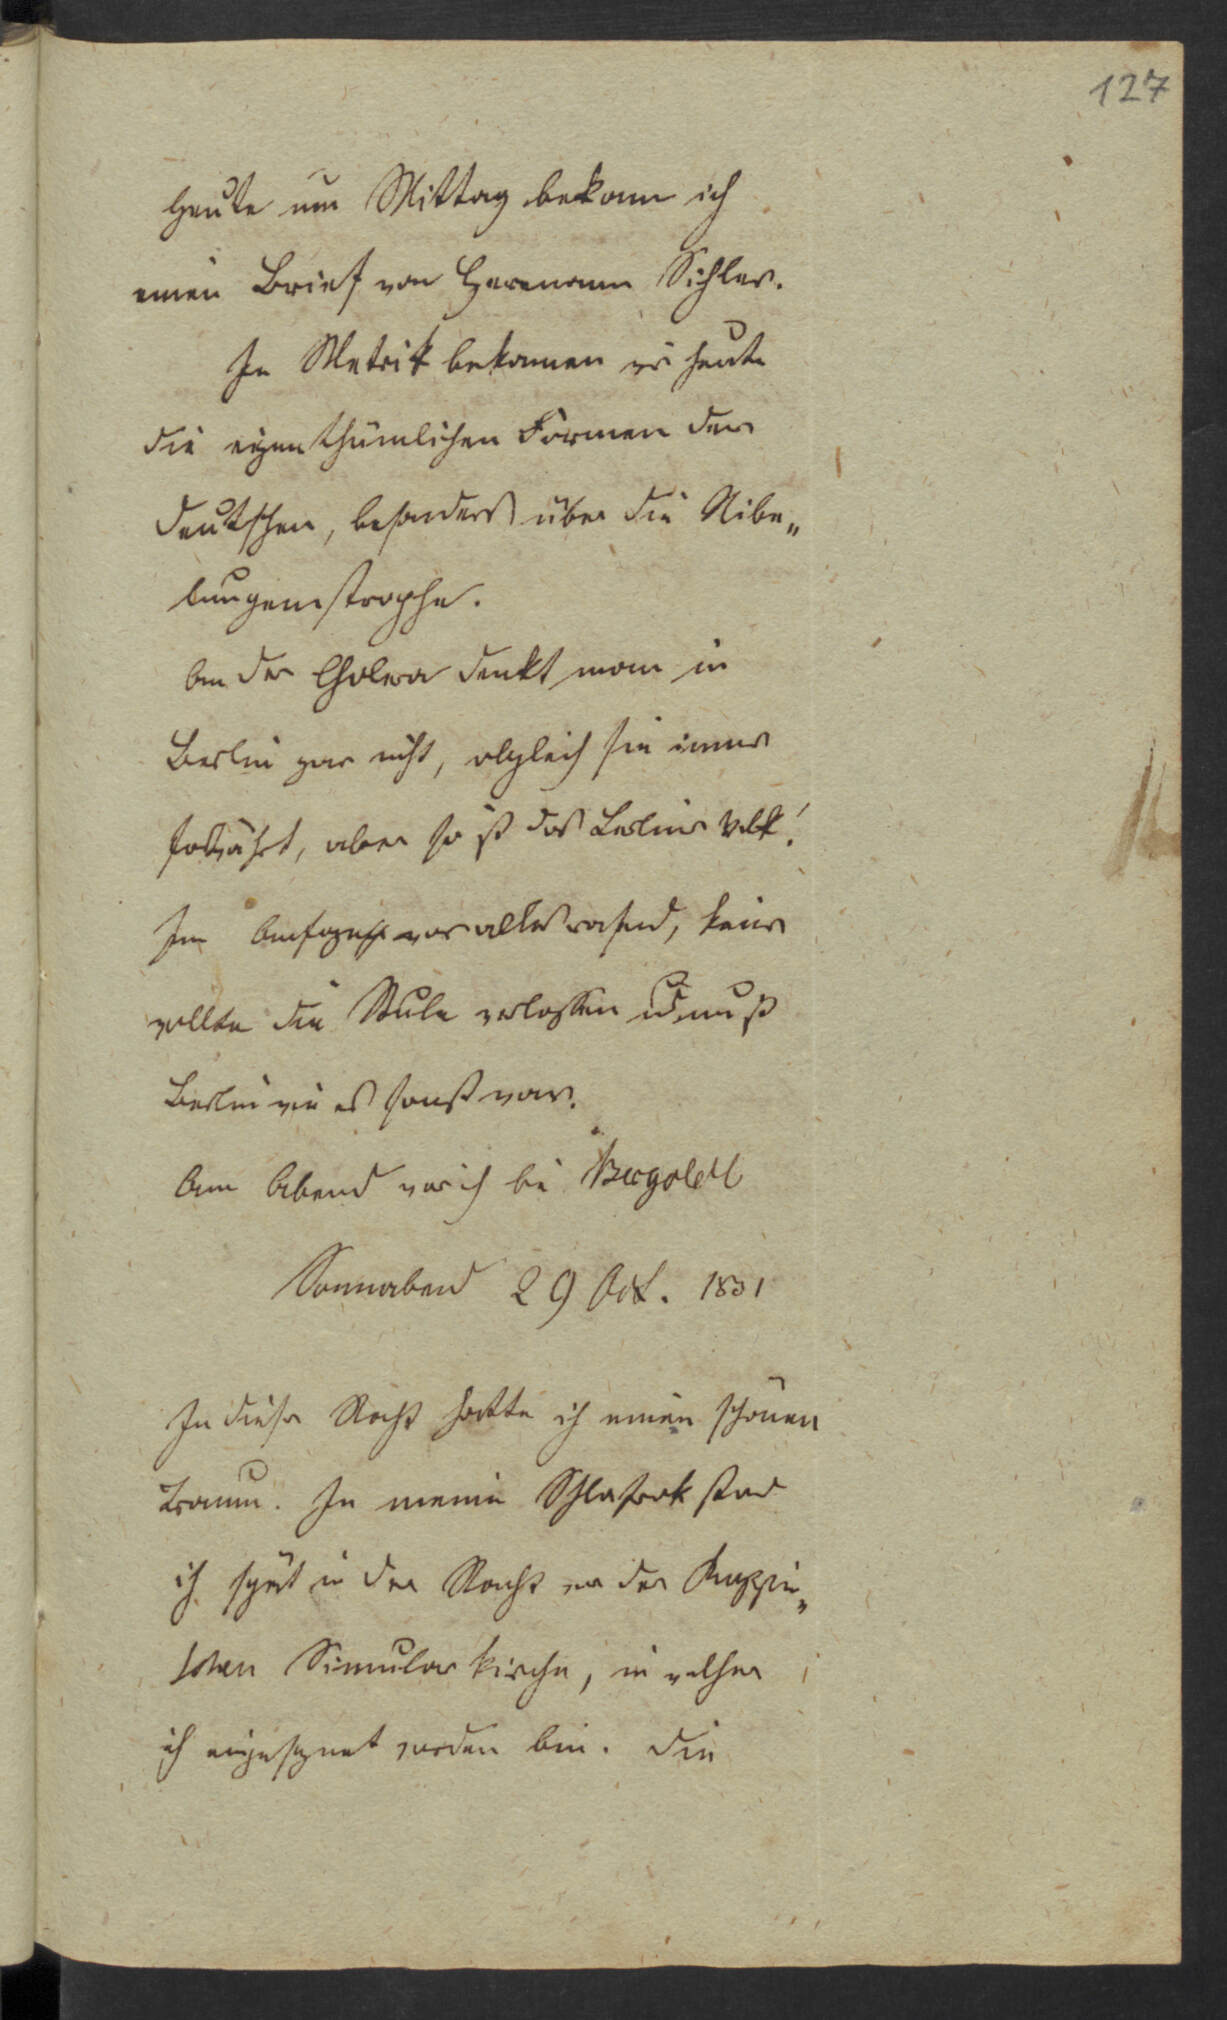 127
Heute um Mittag bekam ich
einen Brief von Hermann Sichler.
In Metrik bekamen wir heute
die eigenthümlichen Formen der
Deutschen, besonders über die Nibe„
lungenstrophe.
An der Cholera denkt man in
Berlin gar nicht, obgleich sie immer
fortwährt, aber so ist das Berliner Volk!
Im Anfange war alles rasend, keiner
wollte die Stube verlassen
Berlin wie es sonst war.
Am Abend war ich bei
Sonnabend 29 Oct. 1831
In dieser Nacht hatte ich einen schönen
Traum. In meinem Schlafrok stand
ich spät in der Nacht vor der Ruppin„
schen Simultankirche, in welcher
ich eingesegnet worden bin. Die